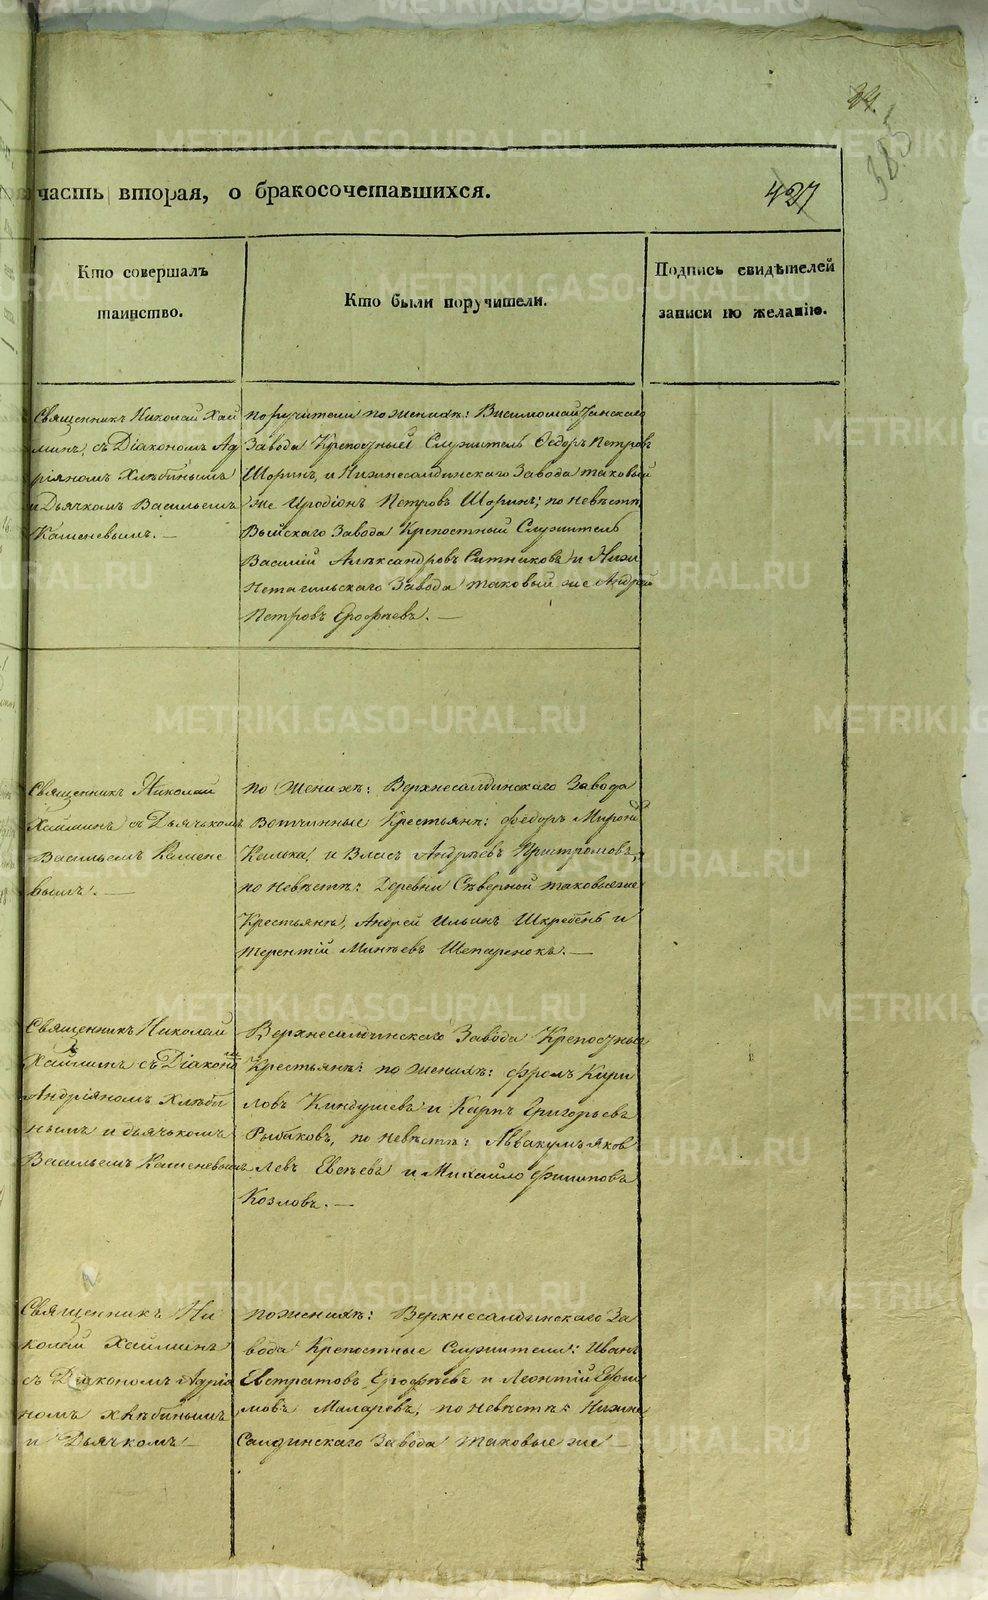 34.
385
часть вторая, о бракосочетавшихся.
427
Кто совершалъ
таинство.
Кто были поручители.
Подпись свидѣтелей
записи по желанію.
Священникъ Николай Хай
минъ, съ Діакономъ Ад
ріяномъ Хлѣбинымъ
и Дьячкомъ Васильемъ
Каменевымъ. —
Поручители по женихѣ: Висимошайтанскаго
Завода Крепостный Служитель Ѳедоръ Петровъ
Шоринъ, и Нижнесалдинскаго Завода таковый
же Иродіонъ Петровъ Шоринъ; по невѣстѣ
Выйскаго Завода Крепостный Служитель
Василій Александровъ Ситниковъ и Нижн
нетагильскаго Завода таковый же Андрей
Петровъ Ерофѣевъ. —
Священникъ Николай
Хайминъ съ Дьячькомъ
Васильемъ Камене
вымъ. —
по женихѣ: Верхнесалдинскаго Завода
Вотчинные Крестьяне: Федоръ
и Власъ Андрѣевъ
по невѣстѣ: Деревни Сѣверной таковые же
Крестьяне, Андрей Ильинъ Шкребень и
Терентій Минѣевъ Шепаренокъ. —
Священникъ Николай
Хайминъ съ Діакономъ
Андріяномъ Хлѣби
нымъ и дьячькомъ
Васильемъ Каменевымъ
Верхнесалдинскаго Завода Крепостные
Крестьяне: по женихѣ: Фролъ Кири
ловъ Киндушевъ и Карпъ Григорьевъ
Рыбаковъ, по невѣстѣ: Аввакумъ Яков
левъ Евсѣевъ и Михайло Филиповъ
Козловъ. —
Священникъ Ни
колай Хайминъ
съ Діакономъ Адрія
номъ Хлѣбинымъ
и Дьячкомъ
по женихѣ: Верхнесалдинскаго За
вода Крепостные Служители: Иванъ
Евстратовъ Ерофѣевъ и Леонтій Ефи
мовъ Маларевъ, по невѣстѣ: Нижне
Салдинскаго Завода таковые же
METRIKI.GASO-URAL.RU